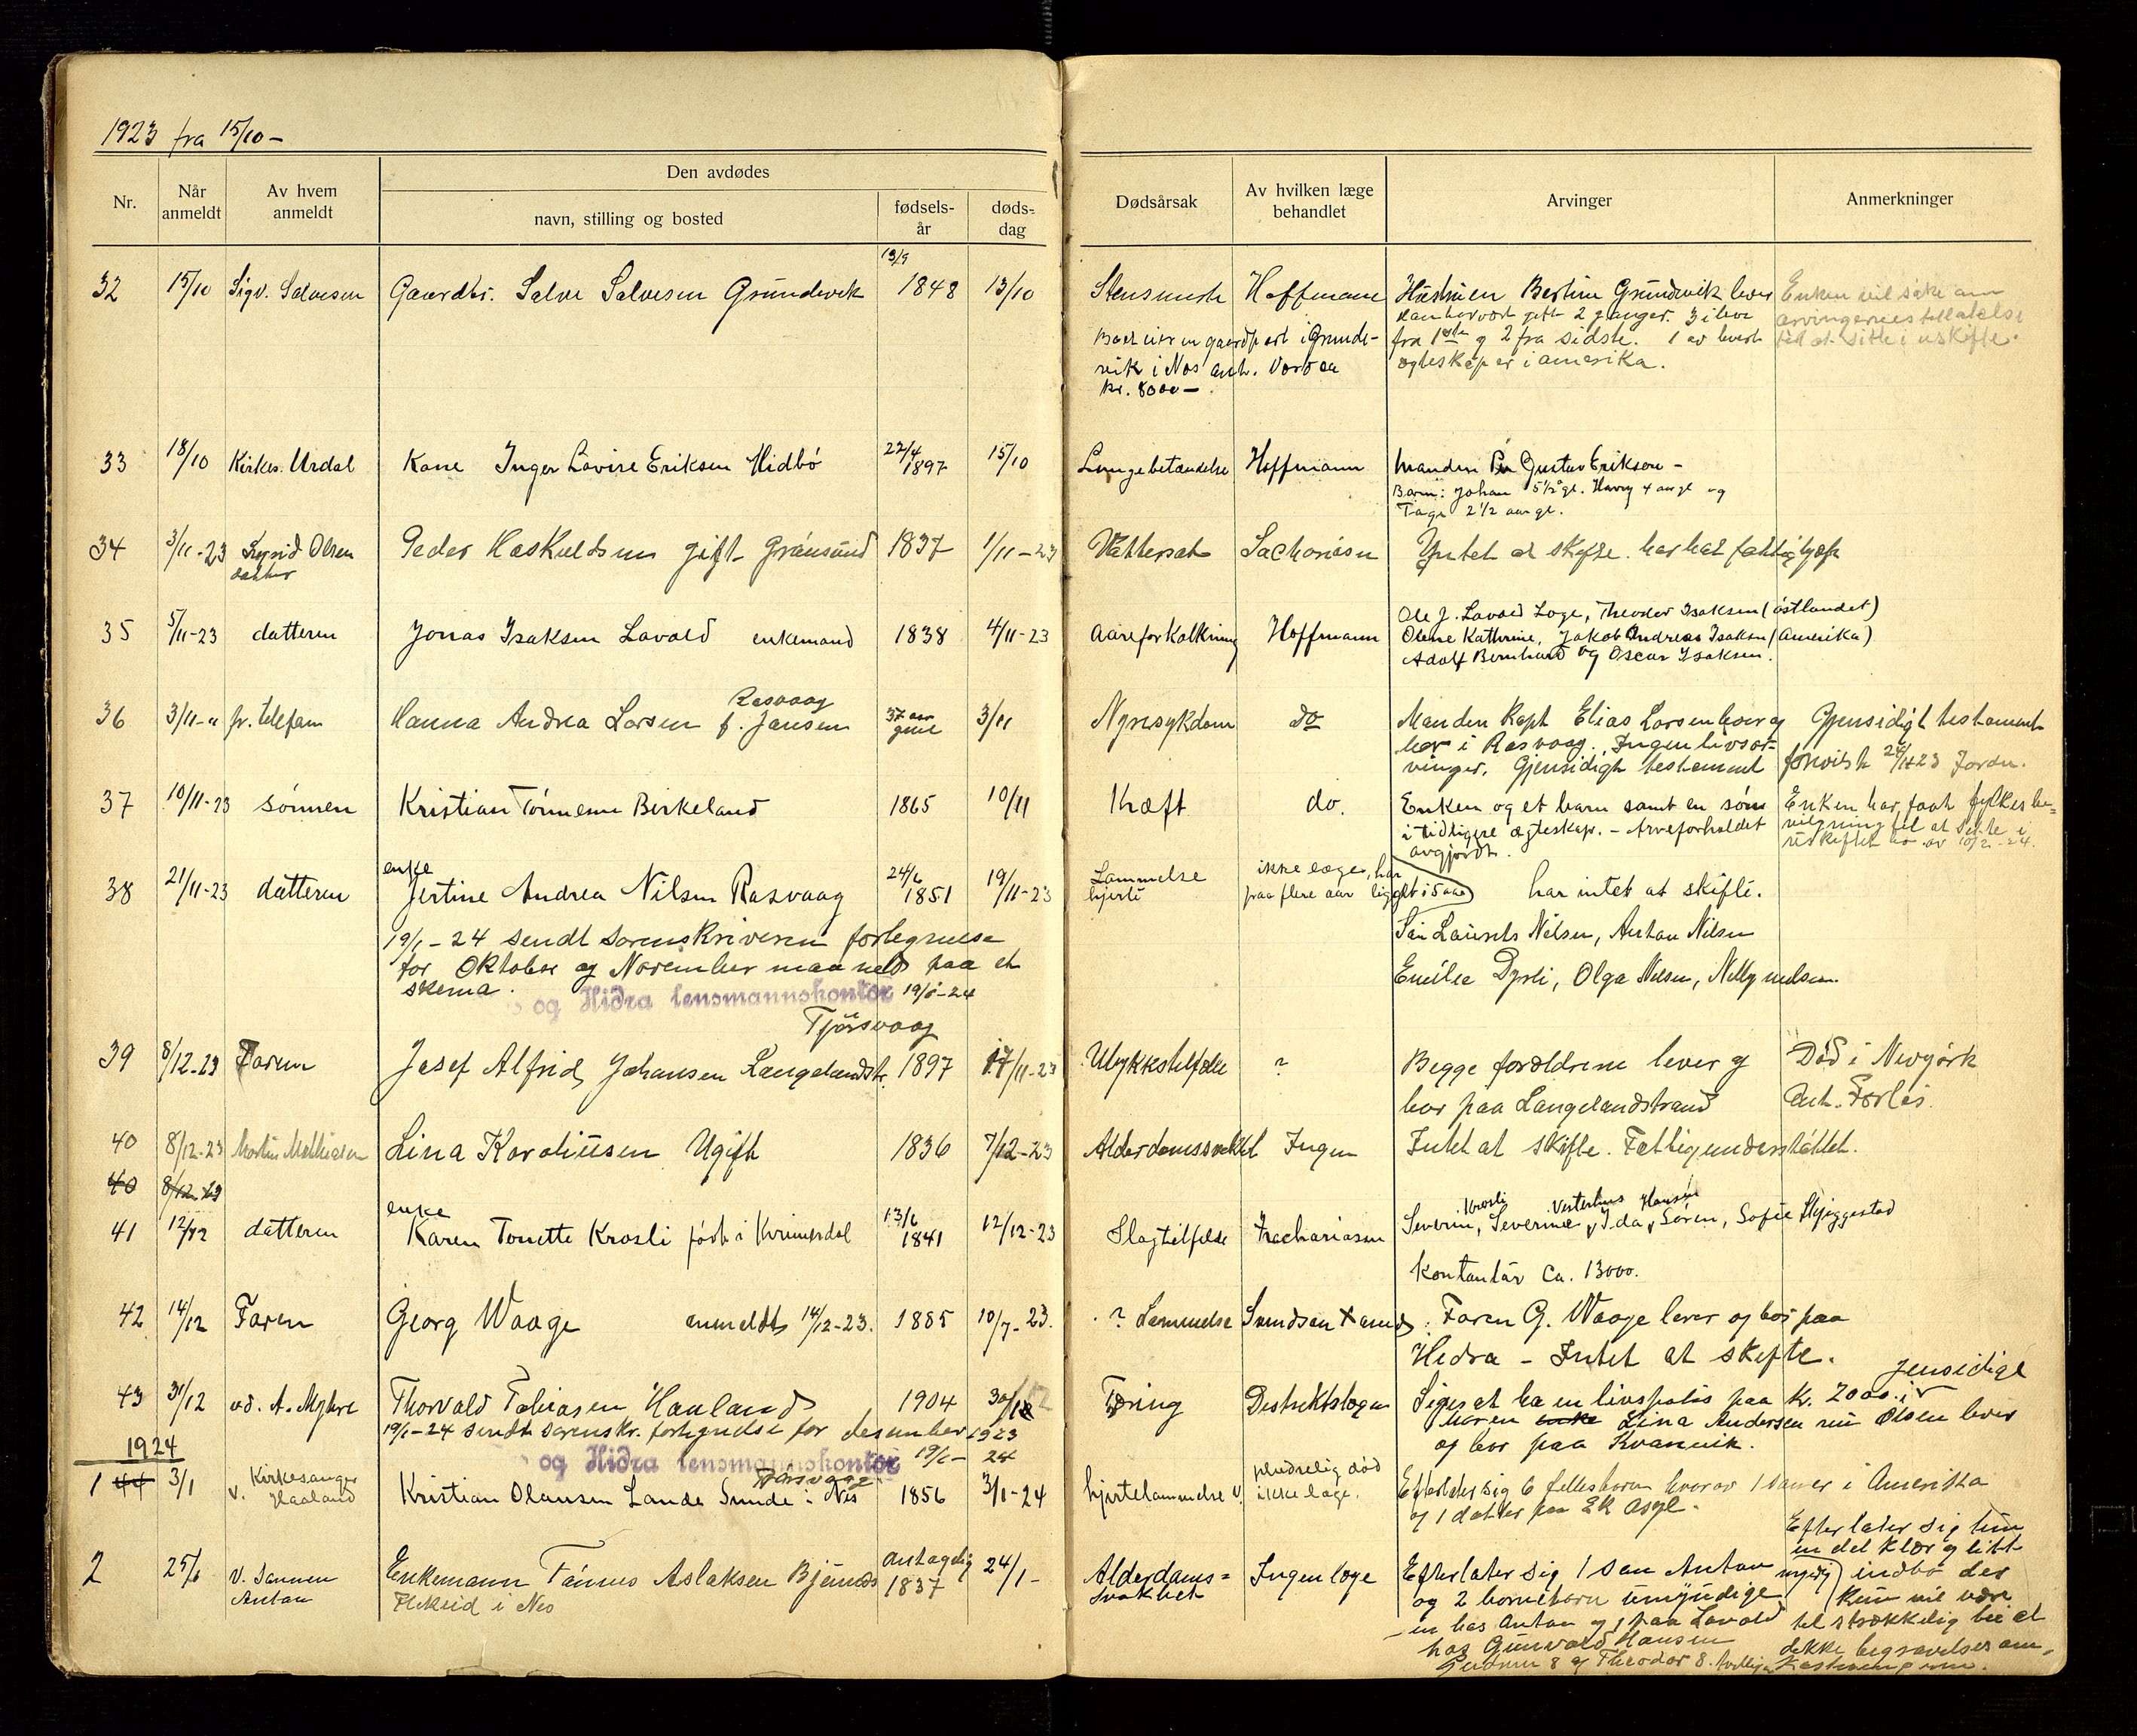 1923 fra 15/10 –
Nr.
Når anmeldt
Av hvem anmeldt
Den avdødes
navn, stilling og bosted
fødsels-år
døds-dag
Dødsårsak
Av hvilken læge behandlet
Arvinger
Anmerkninger
32 15/10 Sigv. Salvesen Gaardbr. Salve Salvesen Grundevik 13/9 1848 13/10 Hoffmann Hustruen Bertine Grundevik lever
Enken vil søke om
arvingernes tillatelse
til at sitte i uskifte.
har vært gift 2 ganger. 3 i live
fra 1ste og 2 fra sidste. 1 av hvert
egteskap er i amerika.
gaardpart i Grunde-
vik i Nes
kr. 8000 –
33 18/10 Kirkes. Urdal Kone Inger Lovise Eriksen Hidbø 22/4 1897 15/10 Lungebetændelse Hoffmann Manden Gustav Eriksen –
Barn: Johan 5 1/2 gl. Harry 4 aar gl og
Tage 2 1/2 aar gl.
34 3/11-23 Olsen Peder Haskuldsen gift Grønsund 1837 1/11-23 Vattersot Sachariasen Intet at skifte. har hat fattighjelp
datter
35 5/11-23 datteren Jonas Isaksen Lavold enkemand 1838 4/11-23 Aareforkalkning Hoffmann
Ole J. Lavold Loge, Theodor Isaksen (østlandet)
Olene Kathrine, Jakob Andreas Isaksen (Amerika)
Adolf Bernhard og Oscar Isaksen.
36 3/11-" pr. telefon Hanna Andrea Larsen f. Jansen Rasvaag 37 aar gml 3/11 Nyresykdom do
Manden Kapt Elias Larsen lever og
bor i Rasvaag. Ingen livsar-
vinger. Gjensidigt testament
Gjensidigt testament
37 10/11-23 sønnen Kristian Tønnesen Birkeland 1865 10/11 Kræft do.
Enken og et barn samt en sønn
i tidligere ægteskap. – Arveforholdet
avgjordt.
Enken har faat fylkesbe-
vilgning til at sitte i
uskiftet bo av 10/2-24.
38 21/11-23 datteren enke Jertine Andrea Nilsen Rasvaag 24/6 1851 19/11-23 Lammelse
hjerte
ikke læge, har
paa flere aar ligget i 5 aar
har intet at skifte.
19/1-24 sendt sorenskriveren fortegnelse
for Oktober og November maaned paa et
skema.
og Hidra lensmannskontor 19/1-24
Laurits Nilsen, Anton Nilsen
Emilie Dyrli, Olga Nilsen, Nelly Nilsen.
39 8/12-23 Faren Josef Alfred Johansen Langelandstr. Tjørsvaag 1897 17/11-23 Ulykkestilfælle ?
Begge forældrene lever og
bor paa Langelandstrand
Død i Newyørk
40 8/12-23 Martin Mathiasen Lina Karoliusen Ugift 1836 7/12-23 Alderdomssvakhet Ingen Intet at skifte. Fattigunderstøttet.
40 8/12-23
41 12/12 datteren enke Karen Tonette Krosli født i Kvinesdal 13/6 1841 12/12-23 Slagtilfælde Zachariasen
Krosli Vesterhus Hansen
Severin, Severine, Ida, Søren, Sofie Skjeggestad
Kontanter ca. 13000.
42 14/12 Faren Georg Waage anmeldt 14/12-23. 1885 10/7-23. ? Lammelse Svendsen
Faren G. Waage lever og bor paa
Hidra – Intet at skifte.
43 31/12 ved. A. Myhre Thorvald Tobiasen Haaland 1904 30/12 Tæring Distriktslægen
Siges at ha en livspolis paa kr. 2000 i
Gjensidige
Moren Lina Andersen nu Olsen lever
og bor paa Kvanvik.
19/1-24 sendt sorenskr. fortegnelse for desember 1923
og Hidra lensmannskontor 19/1-24
1924
1 44 3/1 v. Kirkesanger Haaland Kristian Olausen Lande Sunde i Nes 1856 3/1-24 hjertelammelse
pludselig død
ikke læge.
Efterlater sig 6 fellesbarn hvorav 1 sønn er i Amerika
og 1 datter paa Ek Asyl.
2 25/1 v. sønnen Anton Enkemann Tønnes Aslaksen antagelig 1837 24/1 – Alderdoms-
svakhet
Ingen læge
Efterlater sig 1 søn Anton myndig
og 2 barnebarn umyndige
en hos Anton og 1 paa Lavold
hos Gunvald Hansen
og Theodor 8.
i Nes
Efterlater sig kun
en del klær og litt
indbo der
kun vil være
tilstrækkelig til at
dekke begravelsesom-
kostningerne.